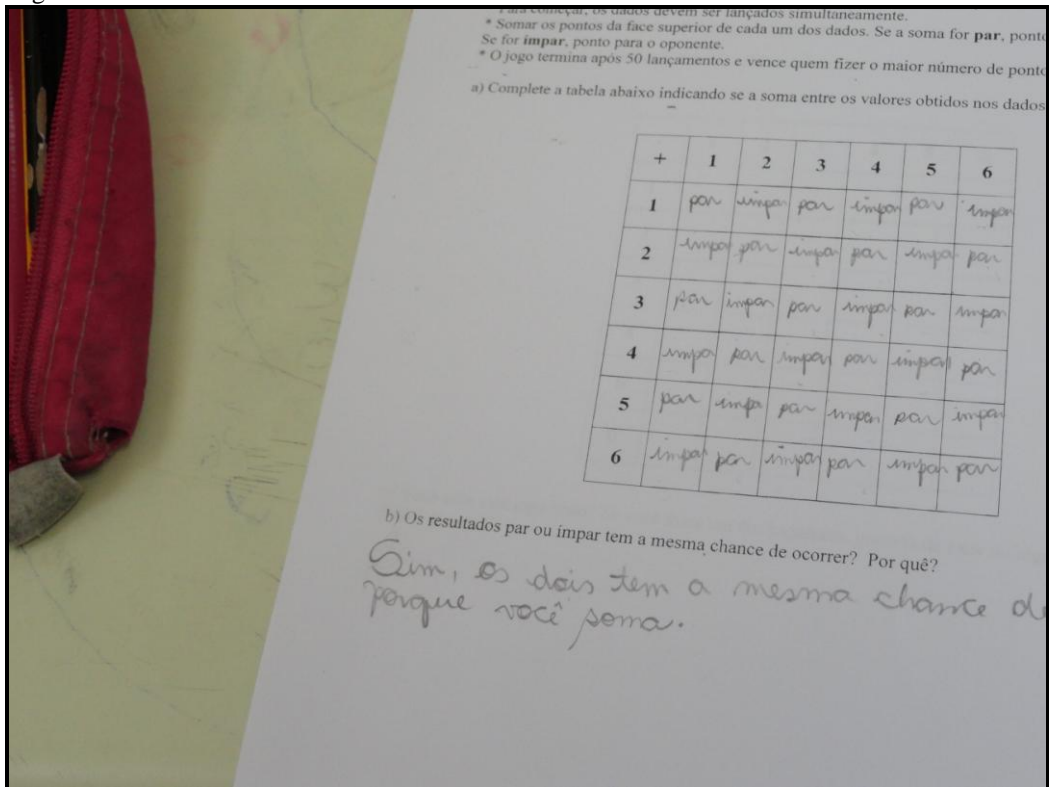 Para começar, os dados devem ser lançados simultaneamente.
* Somar os pontos da face superior de cada um dos dados. Se a soma for par, ponto
Se for impar, ponto para o oponente.
* O jogo termina após 50 lançamentos e vence quem fizer o maior número de ponto
a) Complete a tabela abaixo indicando se a soma entre os valores obtidos nos dados
+ 1 2 3 4 5 6
1 par impar par impar par impar
2 impa par impa par impa par
3 par impar par impar par impar
4 impa par impar par impar par
5 par impa par impar par impar
6 impar par impar par impar par
b) Os resultados par ou impar tem a mesma chance de ocorrer? Por quê?
Sim, os dois tem a mesma chance de
porque você soma.